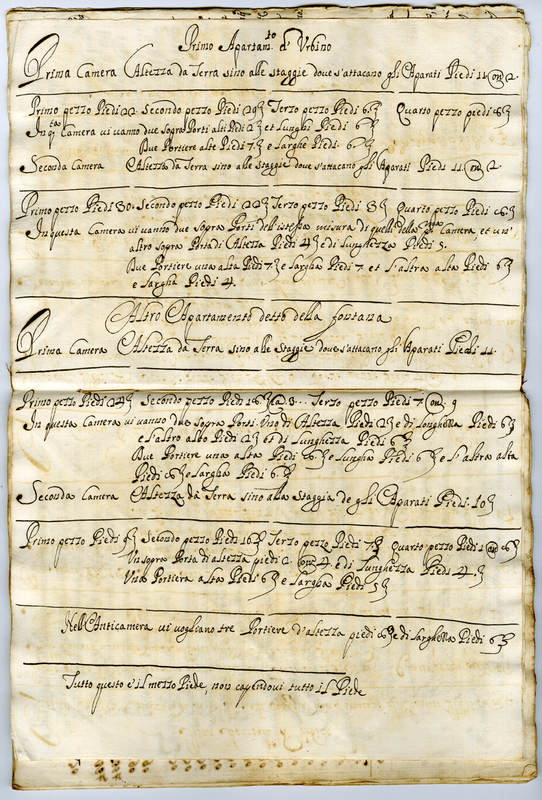 Primo Apartam.to d'Urbino
Prima Camera Altezza da Terra sino alle staggie dove s'attacano gli Aparati Piedi 11 on 2.
Primo pezzo Piedi 22 Secondo pezzo Piedi Terzo pezzo Piedi 6. Quarto pezzo piedi
In q.ta Camera vi vanno due sopra Porti alti Piedi 2 et Lunghi Piedi 6
Due Portiere alte Piedi 7. e Larghe Piedi 6
Seconda Camera Altezza da Terra sino alle Staggie dove s'attacano gli Aparati Piedi 11. on 2
Primo pezzo Piedi 30. Secondo pezzo Piedi 22 Terzo pezzo Piedi 8 Quarto pezzo Piedi 6
In questa Camera vi vanno due sopra Porti dell'istessa misura di quelli della p.ma Camera et un'
altro sopra Porta di Altezza Piedi 4 e di Lunghezza Piedi 5.
Due Portiere una alta Piedi 7 e Largha Piedi 7 et l'altra alta Piedi 6
e Largha Piedi 4.
Altro Apartamento detto della fontana
Prima Camera Altezza da Terra sino alle Staggie dove s'attacano gli Aparati Piedi 11.
Primo pezzo Piedi 24 Secondo pezzo Piedi 18 Terzo pezzo Piedi 7 on 9
In questa Camera vi vanno due sopra Porti Uno di Altezza Piedi 2 e di Longhezza Piedi 6
e l'altro alto Piedi 2 et di Lunghezza Piedi 6
Due Portiere una alta Piedi 6 e Lungha Piedi 6 e l'altra alta
Piedi 6 e Largha Piedi 6.
Seconda Camera Altezza da Terra sino alla Staggia de gli Aparati Piedi 10
Primo pezzo Piedi 9 Secondo pezzo Piedi 16 Terzo pezzo Piedi 7 Quarto pezzo Piedi 1 on 6
Un sopra Porta di altezza piedi 2 on 4 e di Lunghezza Piedi 4.
Una Portiera alta Piedi 6 e Largha Piedi 5
Nell'Anticamera vi vogliano tre Portiere d'altezza piedi 6 e di Larghezza Piedi 6
Tutto questo è il mezzo Piede, non capendovi tutto il Piede